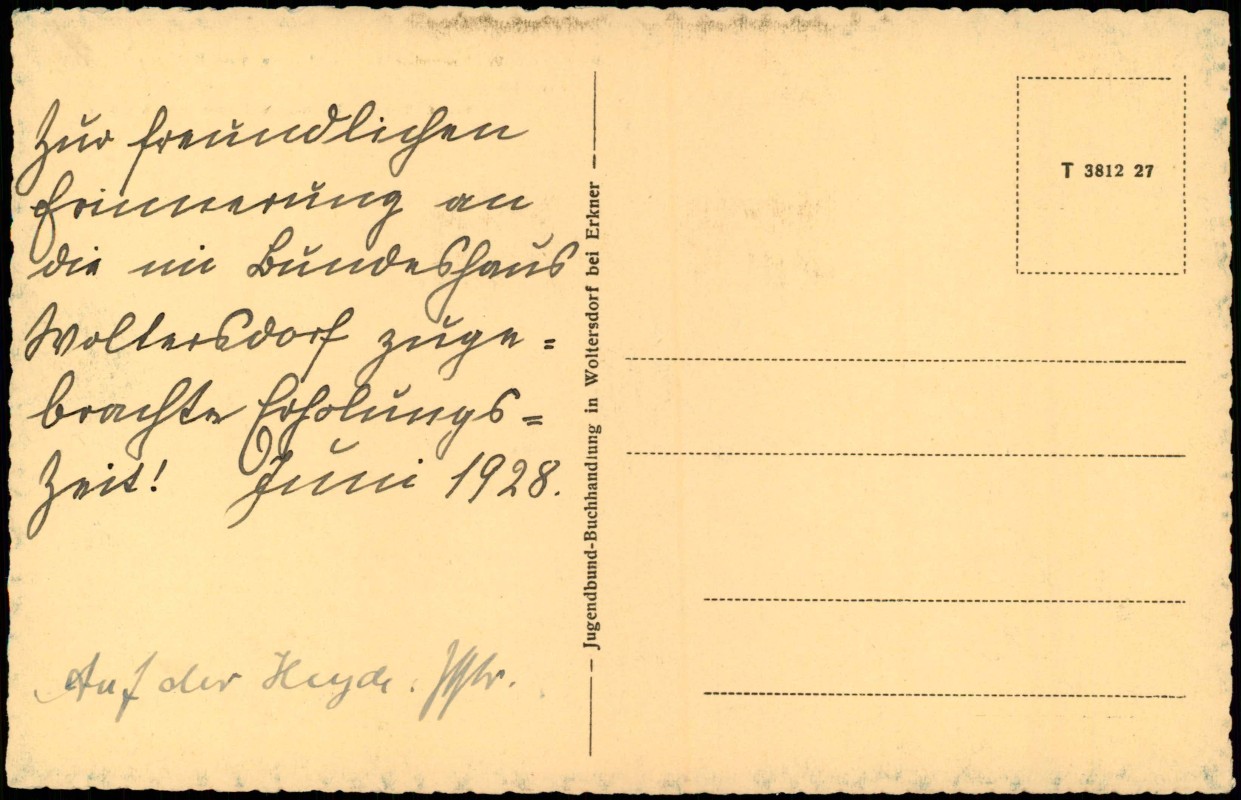 Zur freundlichen
Erinnerung an
die im Bundeshaus
Woltersdorf zuge=
brachte Erholungs=
Zeit! Juni 1928.
Auf der Heyde.
Jugendbund-Buchhandlung in Woltersdorf bei Erkner
T 3812 27